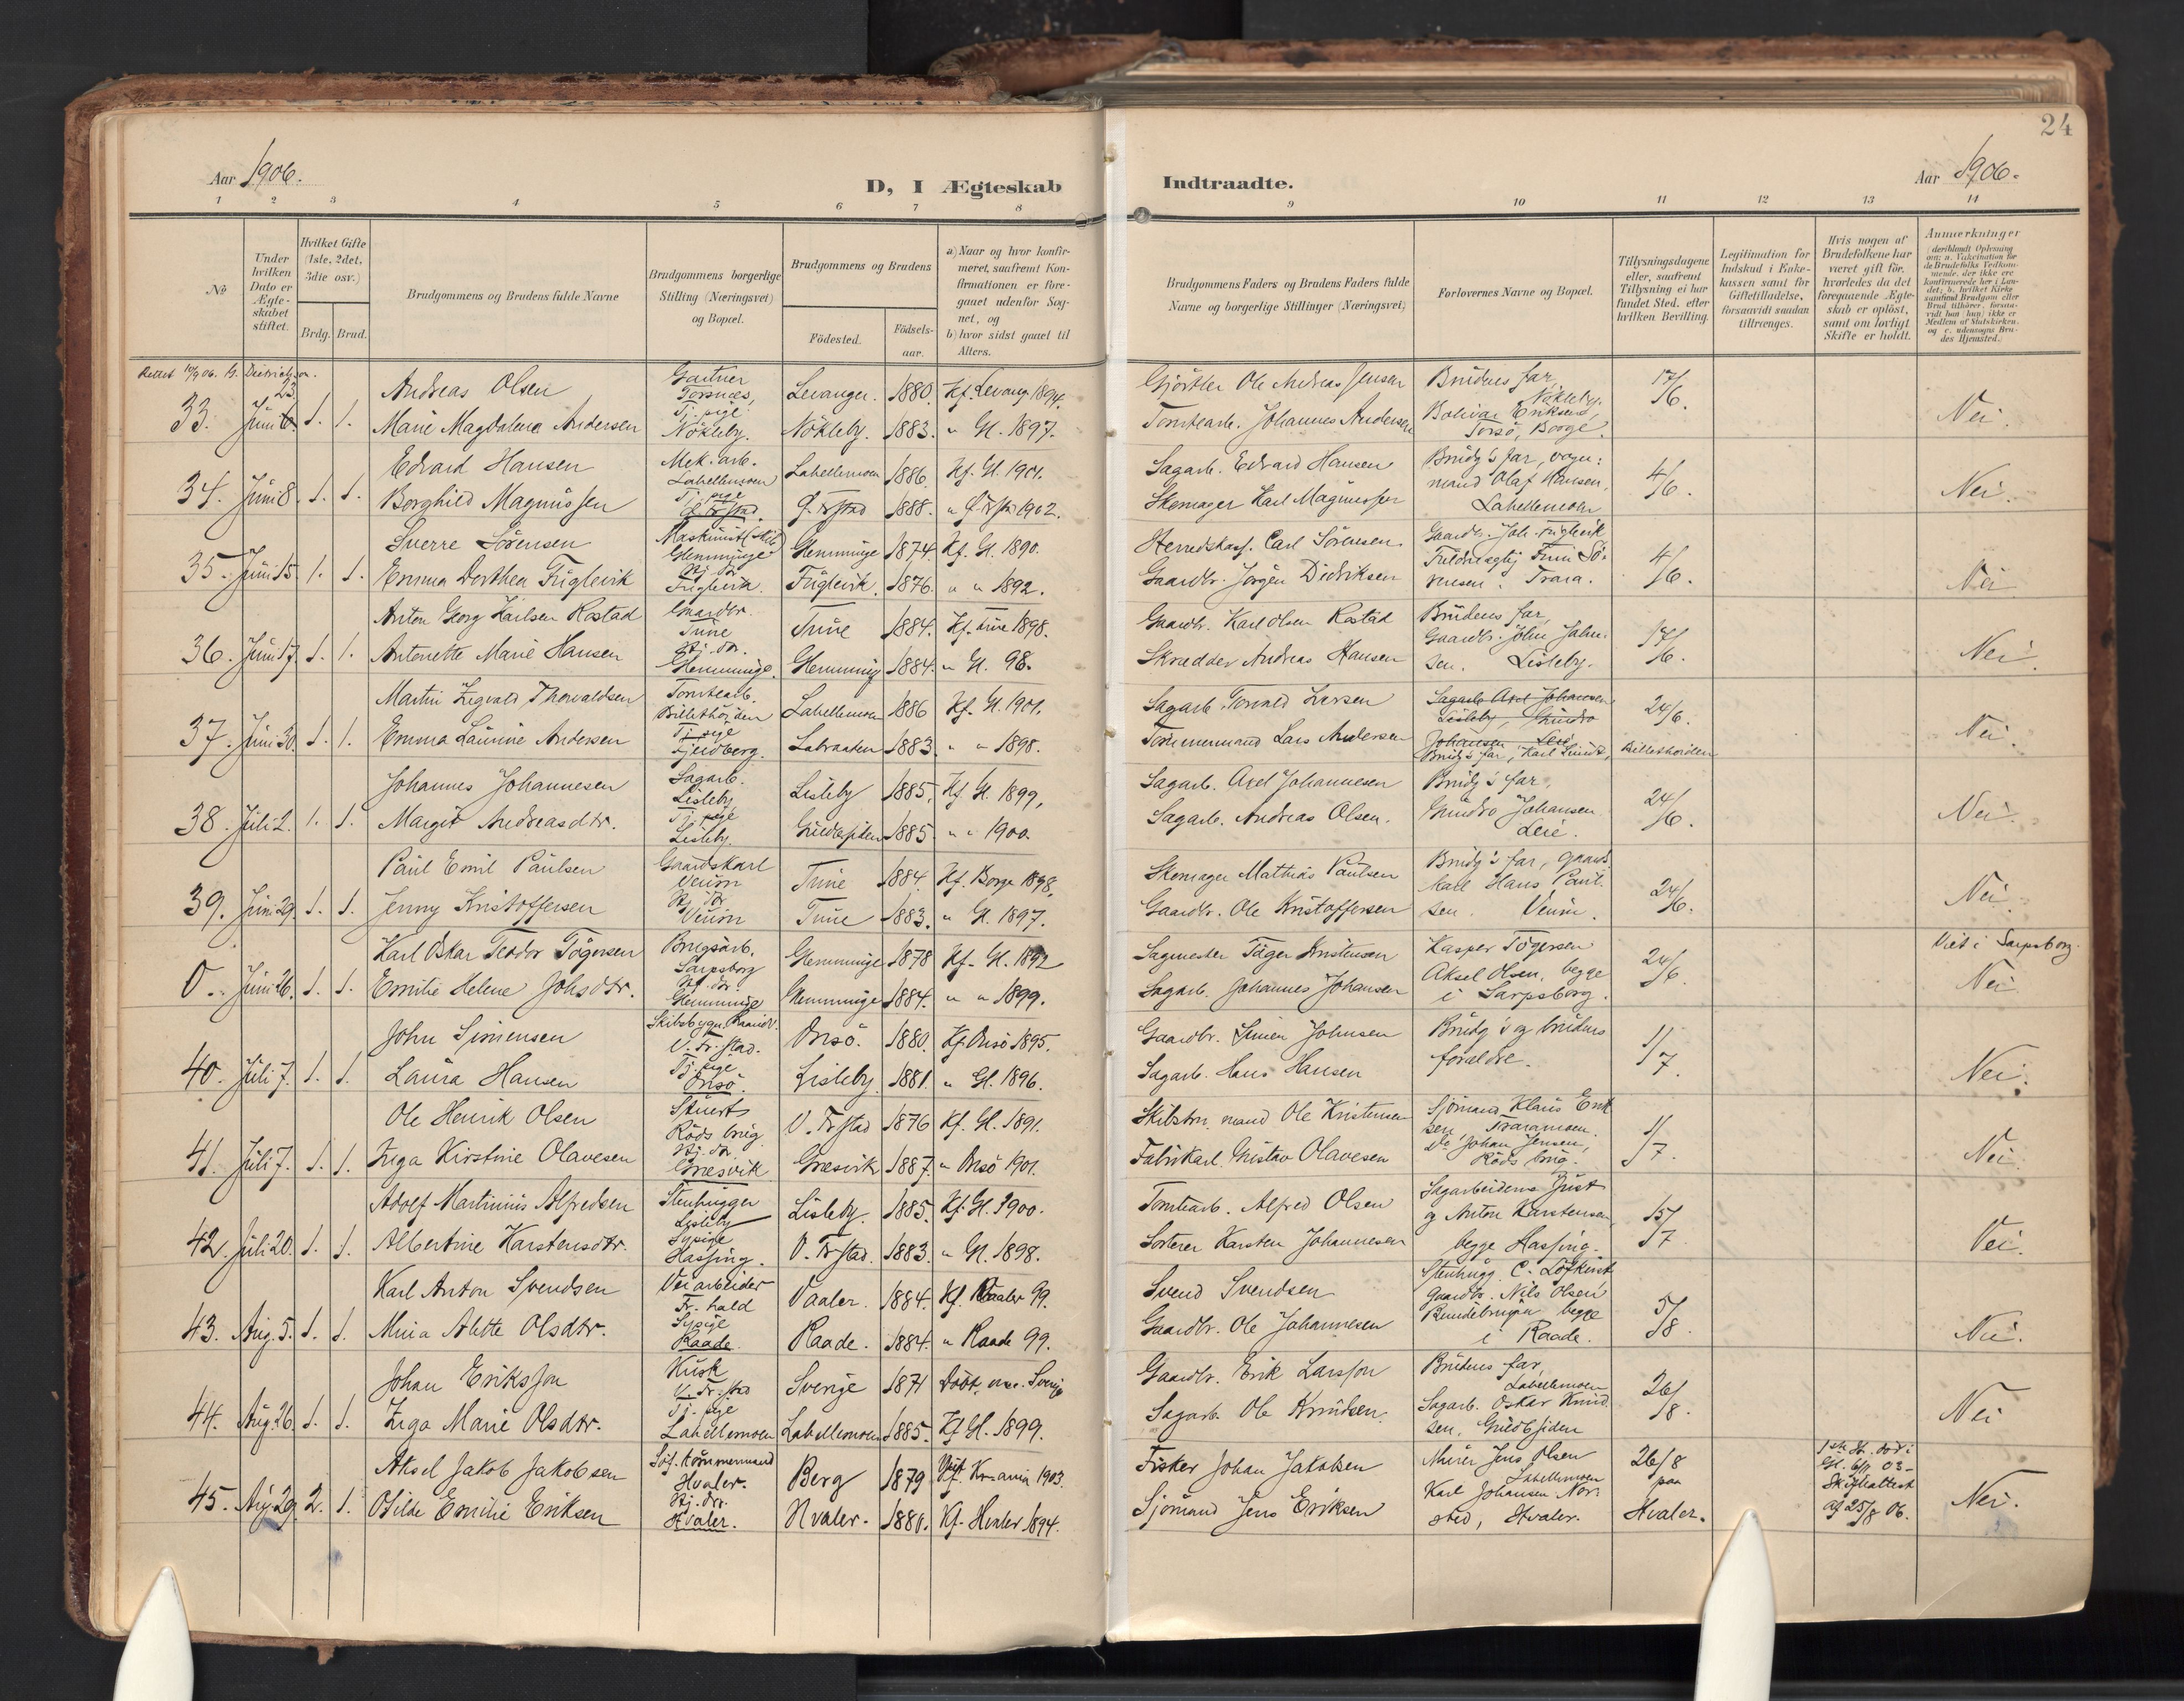 24
Aar 1906.
D, I Ægteskab
Indtraadte.
Aar 1906.
1 2 3 4 5 6 7 8 9 10 11 12 13 14
No
Under hvilken Dato er Ægteskabet stiftet.
Hvilket Gifte (1ste, 2det, 3die osv.)
Brdg. Brud.
Brudgommens og Brudens fulde Navne
Brudgommens borgerlige Stilling (Næringsvei) og Bopæl.
Brudgommens og Brudens
Födested.
Födselsaar.
a) Naar og hvor konfirmeret, saafremt Konfirmationen er foregaaet udenfor Sognet, og
b) hvor sidst gaaet til Alters.
Brudgommens Faders og Brudens Faders fulde Navne og borgerlige Stillinger (Næringsvei)
Forlovernes Navne og Bopæl.
Tillysningsdagene eller, saafremt Tillysning ei har fundet Sted, efter hvilken Bevilling.
Legitimation for Indskud i Enkekassen samt for Giftetilladelse, forsaavidt saadan tiltrænges.
Hvis nogen af Brudefolkene har været gift før, hvorledes da det foregaaende Ægteskab er oplöst, samt om lovligt Skifte er holdt.
Anmærkninger
Rettet 10/9 06. Dietrichson.
33. Juni 23. 1. 1.
Andreas Olsen
Gartner Torsnæs,
Levanger. 1880. Kf. Levang. 1894.
Marie Magdalena Andersen
Tj. pige Nökleby.
Nökleby. 1883. " Gl. 1897.
Gjörtler Ole Andreas Jensen
Tomtearb. Johannes Andersen
Brudens far, Nökleby.
Bolivar Eriksen, Torsö, Borge.
17/6.
Nei.
34. Juni 8. 1. 1.
Edvard Hansen
Mek. arb. Labellemoen
Labellemoen 1886. Kf. Gl. 1901.
Borghild Magnussen
Tj. pige
1888. 1902.
Sagarb. Edvard Hansen
Skomager Karl Magnussen
Brudg's far, vognmand Olaf Hansen, Labellemoen
4/6.
Nei.
35. Juni 15. 1. 1.
Sverre Sörensen
Glemminge
Glemminge 1874. Kf. Gl. 1890.
Emma Dorthea Fuglevik
Fuglevik.
Fuglevik. 1876. " " 1892.
Herredskass. Carl Sörensen.
Gaardbr. Jörgen Didriksen
Gaardbr. Joh. Fuglevik
Sörensen. Trara.
4/6.
Nei
36. Juni 17. 1. 1.
Anton Georg Karlsen Rostad
Gaardbr. Tune
Tune 1884. Kf. Tune 1898.
Antonette Marie Hansen
Glemminge.
Glemminge 1884. " Gl. 98.
Gaardbr. Karl Olsen Rostad
Skrædder Andreas Hansen
Brudens far,
Gaardbr. John Johnsen. Lisleby.
17/6.
Nei.
37. Juni 30. 1. 1.
Martin Sigvald Thorvaldsen
Tomtearb. Billethöiden
Labellemoen 1886 Kf. Gl. 1901.
Emma Laurine Andersen
Tj. pige Fjeldberg.
Labraaten 1883. " " 1898.
Sagarb. Torvald Larsen
Tömmermand Lars Andersen
Sagarb. Axel Johansen Lisleby, Gundro Johansen Leie
Brudg's far, Karl Smidt, Billethöiden
24/6.
Nei.
38. Juli 2. 1. 1.
Johannes Johannesen
Sagarb. Lisleby
Lisleby 1885. Kf. Gl. 1899,
Margit Andreasdtr.
Tj. pige Lisleby.
1885 " " 1900.
Sagarb. Axel Johannesen
Sagarb. Andreas Olsen.
Brudg's far,
Gundro Johansen Leie.
24/6.
Nei.
39. Juni 29. 1. 1.
Paul Emil Paulsen
Gaardskarl Veum
Tune 1884. Kf. Borge 1898,
Jenny Kristoffersen
Veum
Tune 1883. " Gl. 1897.
Skomager Mathias Paulsen
Gaardbr. Ole Kristoffersen
Brudg's far, gaardskarl Hans Paulsen. Veum.
24/6.
Nei.
0. Juni 26. 1. 1.
Karl Oskar Teodor Tögersen
Brugsarb. Sarpsborg
Glemminge 1878 Kf. Gl. 1892
Emilie Helene Johsdtr.
Glemminge
Glemminge 1884. " " 1899.
Sagmester Töger Kristensen
Sagarb. Johannes Johansen
Kasper Tögersen
Aksel Olsen, begge i Sarpsborg.
24/6
Viet i Sarpsborg.
Nei.
40. Juli 7. 1. 1.
John Simensen
V. Fr.stad.
Onsö. 1880. Kf. Onsö 1895.
Laura Hansen
Tj. pige Onsö.
Lisleby 1881. " Gl. 1896.
Gaardbr. Simen Johnsen
Sagarb. Hans Hansen
Brudg's og brudens forældre.
1/7.
Nei.
41. Juli 7. 1. 1.
Ole Henrik Olsen
Stuert Röds brug
V. Fr.stad 1876 Kf. Gl. 1891.
Inga Kirstine Olavesen
Gresvik
Gresvik 1887. " Onsö 1901.
Skibstm. mand Ole Kristensen
Fabrikarb. Gustav Olavesen
Sjömand Klaus Eriksen, Traramoen.
Do Johan Jensen, Röds brug.
1/7.
Nei.
42. Juli 20. 1. 1.
Adolf Martinius Alfredsen
Stenhugger Lisleby
Lisleby. 1885. Kf. Gl. 1900.
Albertine Karstensdtr.
Sypige Hassing.
V. Fr.stad. 1883. " Gl. 1898.
Tomtearb. Alfred Olsen
Sorterer Karsten Johannesen
Sagarbeiderne Just og Anton Karstensen, begge Hassing.
15/7
Nei.
43. Aug. 5. 1. 1.
Karl Anton Svendsen
Veiarbeider Fr. hald
Vaaler. 1884. Kf. Vaaler 99.
Mina Alette Olsdtr.
Sypige Raade.
Raade. 1884. " Raade 99.
Svend Svendsen
Gaardbr. Ole Johannesen
Stenhugg. C. Löfkvist
Gaardbr. Nils Olsen
begge i Raade.
5/8.
Nei.
44. Aug. 26. 1. 1.
Johan Eriksson
Kusk V. Fr.stad
Sverige 1871 Sverige
Inga Marie Olsdtr.
Tj. pige Labellemoen
Labellemoen 1885. Kf. Gl. 1899.
Gaardbr. Erik Larsson
Sagarb. Ole Knudsen.
Brudens far, Labellemoen
Sagarb. Oskar Knudsen,
26/8.
Nei
45. Aug. 29. 2. 1.
Aksel Jakob Jakobsen
Hvaler.
Berg 1879 Kr.ania 1903.
Otilde Emilie Eriksen
Hvaler.
Hvaler. 1880. Kf. Hvaler 1894.
Fisker Johan Jakobsen
Sjömand Jens Eriksen
Murer Jens Olsen Labellemoen
Karl Johansen Norsted, Hvaler.
26/8 paa Hvaler.
Skifteattest af 25/8 06.
Nei.